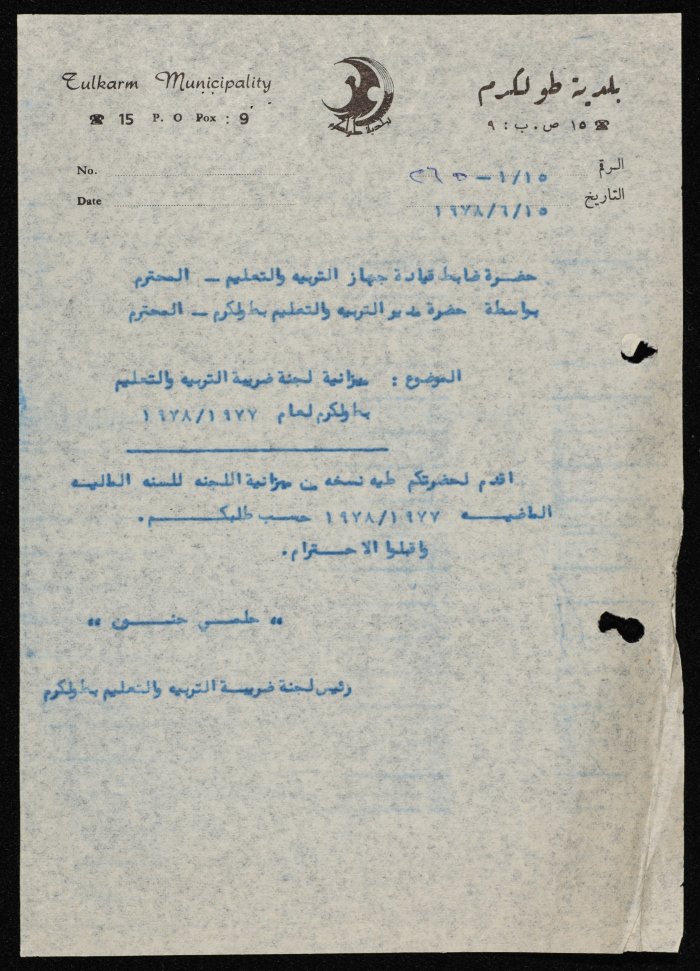 Tulkarm Municipality
☎ 15 P. O Pox : 9
بلدية طولكرم
☎ ١٥ ص.ب : ٩
بلدية طولكرم
No.
Date
الرقم ١/١٥ –
التاريخ ١٩٧٨/٦/١٥
حضرة ضابط قيادة جهاز التربيه والتعليم – المحترم
بواسطة حضرة مدير التربيه والتعليم بطولكرم – المحترم
الموضوع : ميزانية لجنة ضريبة التربيه والتعليم
بطولكرم لعام ١٩٧٨/١٩٧٧
اقدم لحضرتكم طيه نسخه من ميزانية اللجنه للسنه الماليه
الماضيه ١٩٧٨/١٩٧٧ حسب طلبكم .
واقبلوا الاحترام .
" حلمي حنون "
رئيس لجنة ضريبة التربيه والتعليم بطولكرم